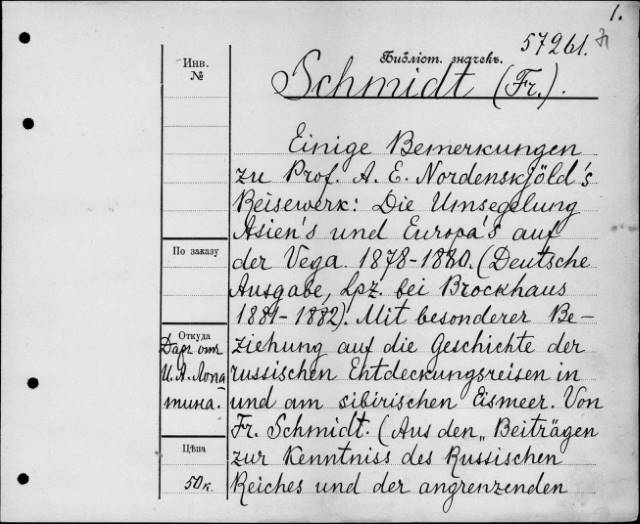 1.
57261.
Инв. №
Библіот. значекъ.
Schmidt (Fr.).
Einige Bemerkungen
zu Prof. A. E. Nordenskjöld's
Reisewerk: Die Umsegelung
Asien's und Europa's auf
der Vega. 1878-1880. (Deutsche
Ausgabe, Lpz. bei Brockhaus
1881-1882). Mit besonderer Be-
ziehung auf die Geschichte der
russischen Entdeckungsreisen in
und am sibirischen Eismeer. Von
Fr. Schmidt. (Aus den „Beiträgen
zur Kenntniss des Russischen
Reiches und der angrenzenden
По заказу
Откуда
Даръ отъ
И. А. Лопа-
тина.
Цѣна
50 к.